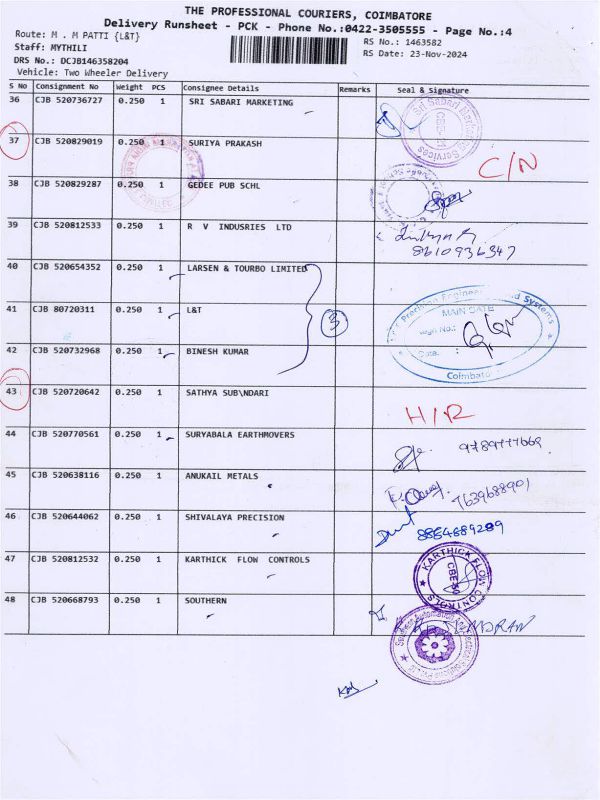 THE PROFESSIONAL COURIERS, COIMBATORE
Delivery Runsheet - PCK - Phone No.:0422-3505555 - Page No.:4
Route: M . M PATTI {L&T}
Staff: MYTHILI
DRS No.: DCJB146358204
Vehicle: Two Wheeler Delivery
RS No.: 1463582
RS Date: 23-Nov-2024
S No Consignment No Weight PCS Consignee Details Remarks Seal & Signature
36 CJB 520736727 0.250 1 SRI SABARI MARKETING
Sri Sabari Marketing Services
37 CJB 520829019 0.250 1 SURIYA PRAKASH C/N
38 CJB 520829287 0.250 1 GEDEE PUB SCHL
39 CJB 520812533 0.250 1 R V INDUSRIES LTD
8610936347
40 CJB 520654352 0.250 1 LARSEN & TOURBO LIMITED
41 CJB 80720311 0.250 1 L&T
3
Precision Engineer and Systems
MAIN GATE
Sign No.:
Date :
Coimbato
42 CJB 520732968 0.250 1 BINESH KUMAR
43 CJB 520720642 0.250 1 SATHYA SUB\NDARI
H/R
44 CJB 520770561 0.250 1 SURYABALA EARTHMOVERS
9789777669
45 CJB 520638116 0.250 1 ANUKAIL METALS
7639688901
46 CJB 520644062 0.250 1 SHIVALAYA PRECISION
8884689289
47 CJB 520812532 0.250 1 KARTHICK FLOW CONTROLS
KARTHICK FLOW CONTROLS
48 CJB 520668793 0.250 1 SOUTHERN